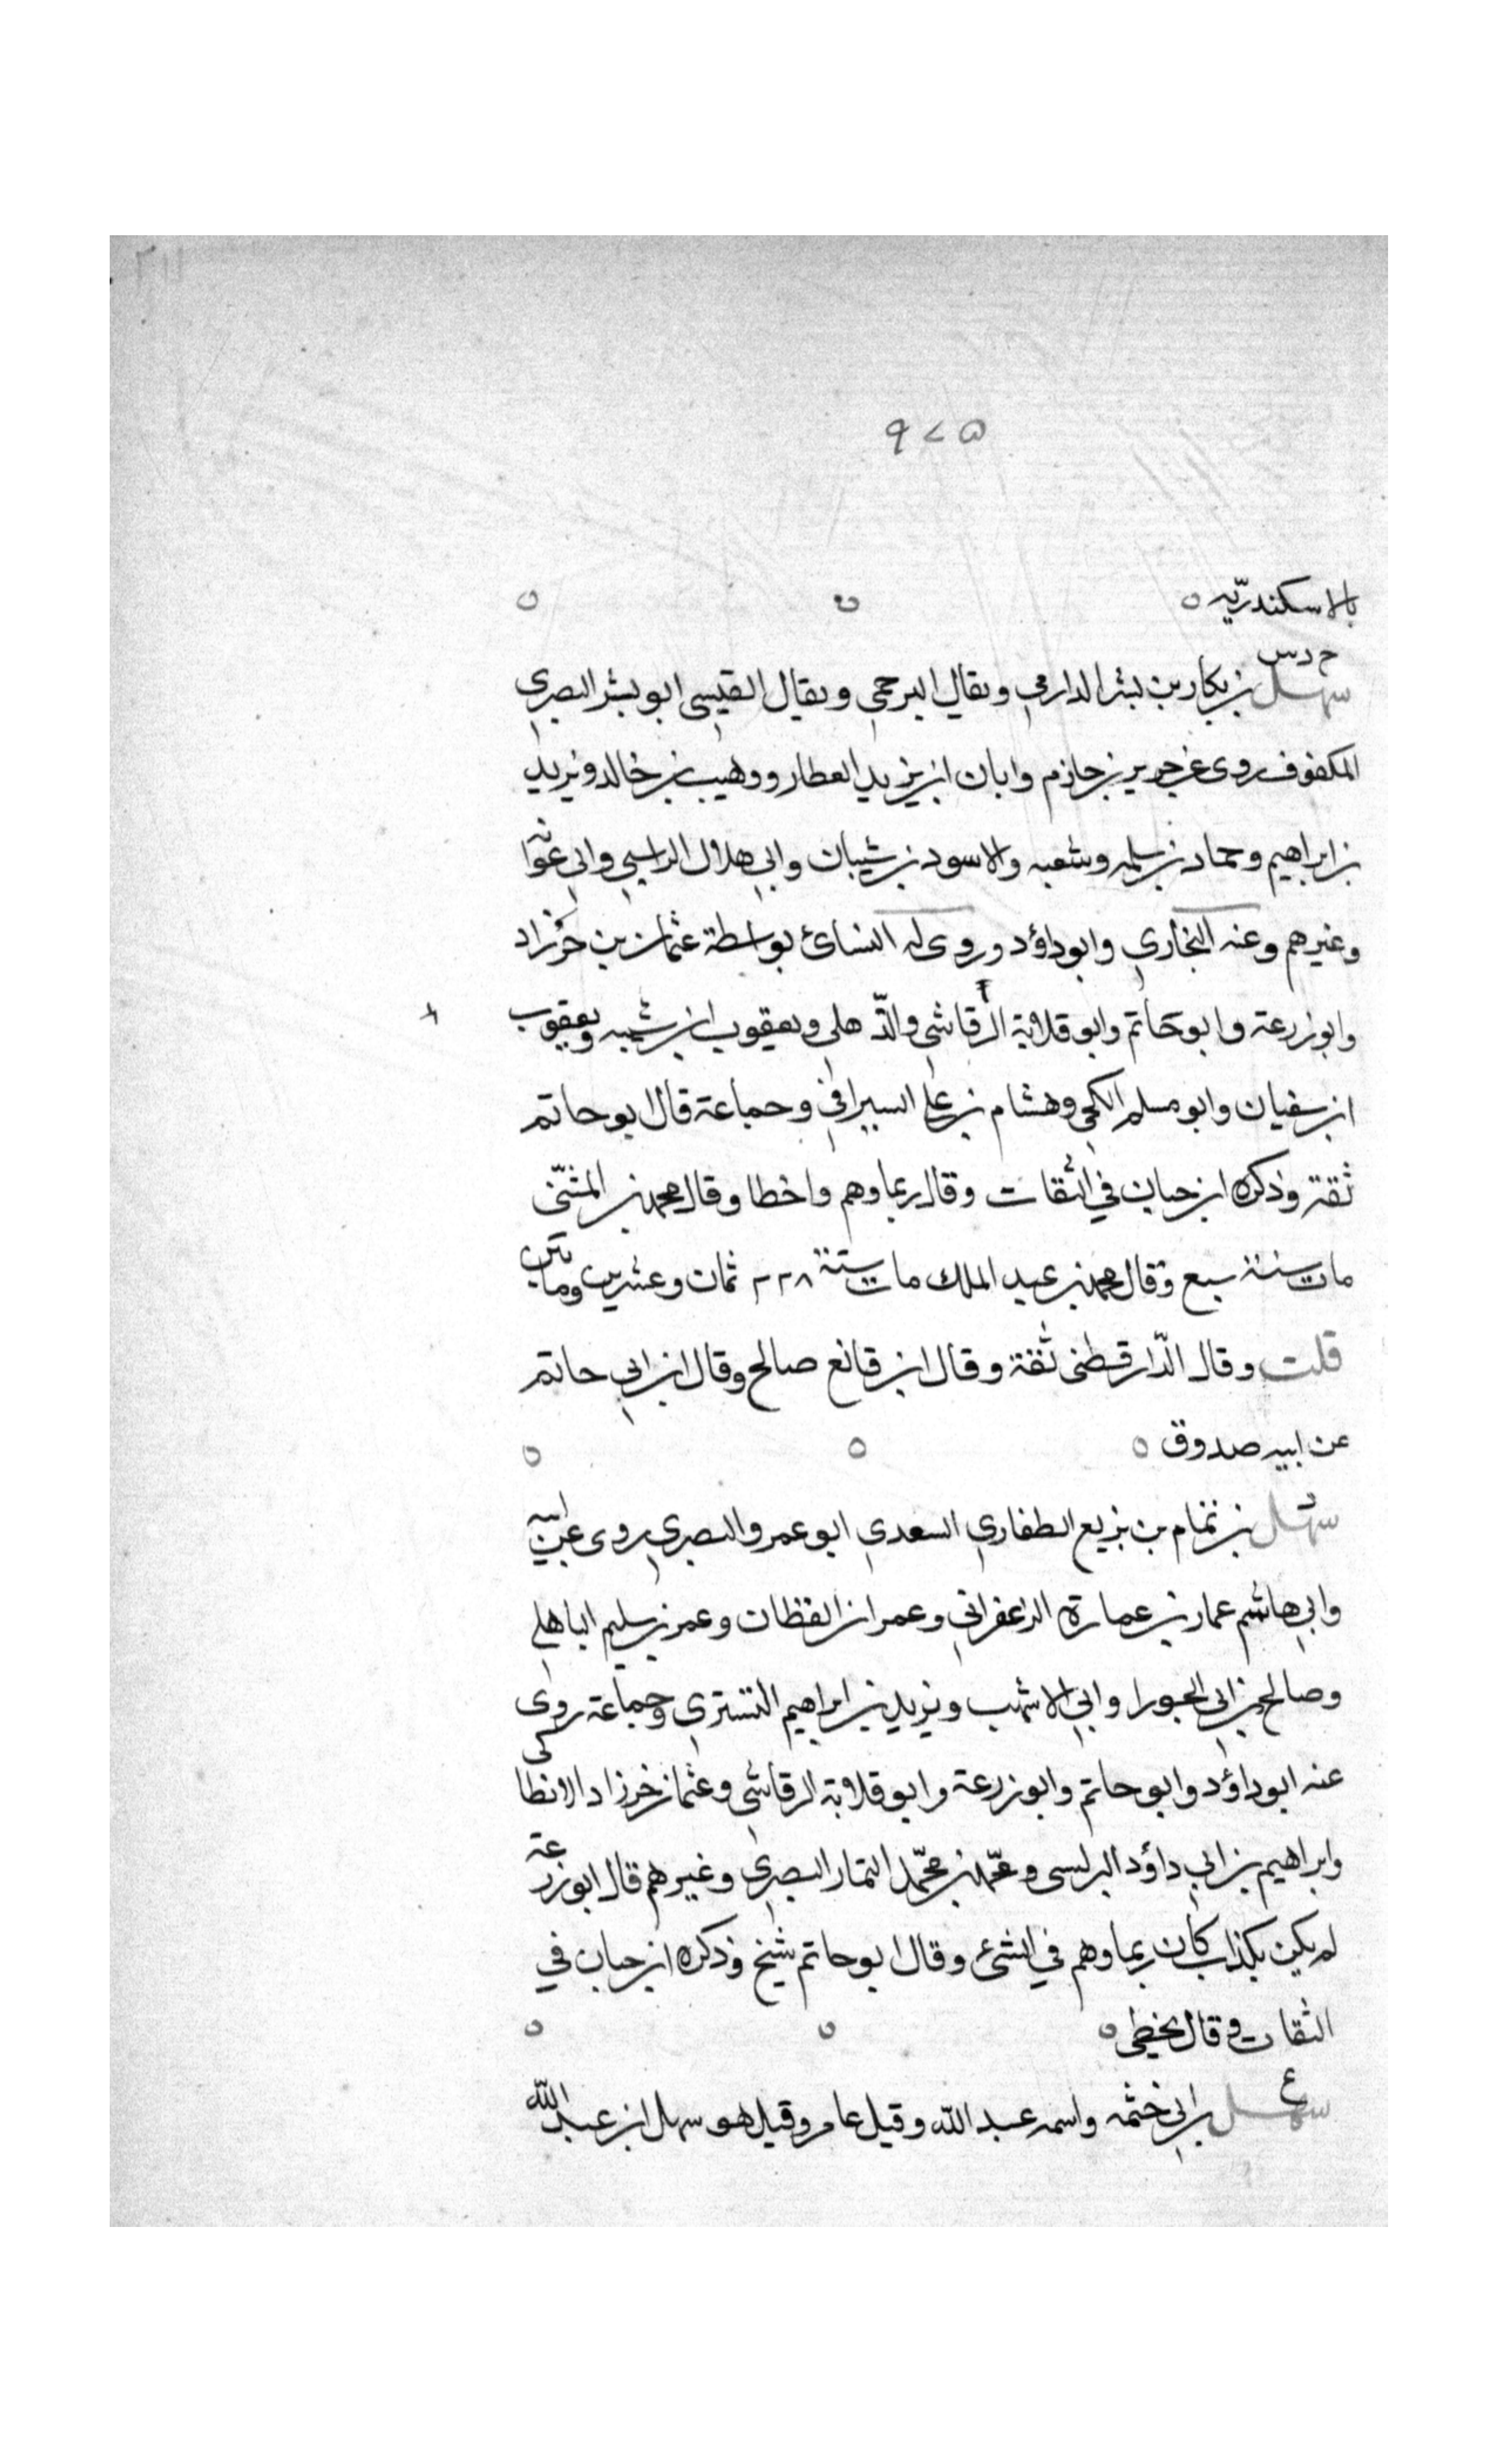 ٩٢٥
بالاسكندريّه ٥ ٥ ٥
خ د س
سهل بن بكار بن بشر الدارمي ويقال البرجمي ويقال القيسي ابو بشر البصري
المكفوف روى عن جرير بن حازم وابان ابن يزيد العطار ووهيب بن خالد ويزيد
بن ابراهيم وحماد بن سلمه وشعبه والاسود بن شيبان وابي هلال الراسبي وابي عوانه
وغيرهم وعنه البخاري وابو داؤد وروى له النسائ بواسطة عثمان بن خرزاد
وابو زرعة وابو حاتم وابو قلابة الرقاشي والذّهلي ويعقوب ابن شيبه ويعقوب
ابن سفيان وابو مسلم الكجي وهشام بن علي السيرافي وجماعة قال ابو حاتم
ثقة وذكره ابن حبان في الثقات وقال ربما وهم واخطا وقال محمد بن المثنّى
مات سنة سبع وقال محمد بن عبد الملك مات سنة ٢٢٨ ثمان وعشرين ومائتين
قلت وقال الدّارقطني ثقة وقال ابن قانع صالح وقال ابن ابي حاتم
عن ابيه صدوق ٥ ٥ ٥
سهل بن تمام بن بزيع الطفاري السعدي ابو عمرو البصري روى عن ابيه
وابي هاشم عمار بن عمارة الزعفراني وعمر ان القظان وعمر بن سليم الباهلي
وصالح بن ابي الجورا وابي الاشهب ويزيد بن ابراهيم التستري وجماعة روى
عنه ابو داؤد وابو حاتم وابو زرعة وابو قلابة الرقاشي وعثمان خرزاد الانطاكى
وابراهيم بن ابي داؤد البرلسي ومحمد بن محمّد التمار البصري وغيرهم قال ابو زرعة
لم يكن بكذاب كان ربما وهم في الشئ وقال ابو حاتم شيخ وذكره ابن حبان في
الثقات وقال يخطي ٥ ٥ ٥
ع
سهل بن ابي خثمه واسمه عبد الله وقيل عامر وقيل هو سهل ابن عبد الله